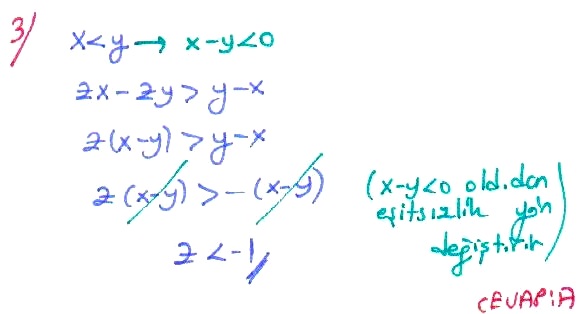 3/ x<y → x-y<0
zx-zy>y-x
z(x-y)>y-x
z(x-y)>-(x-y) (x-y<0 old.dan
eşitsizlik yön
değiştirir)
z<-1//
CEVAP:A